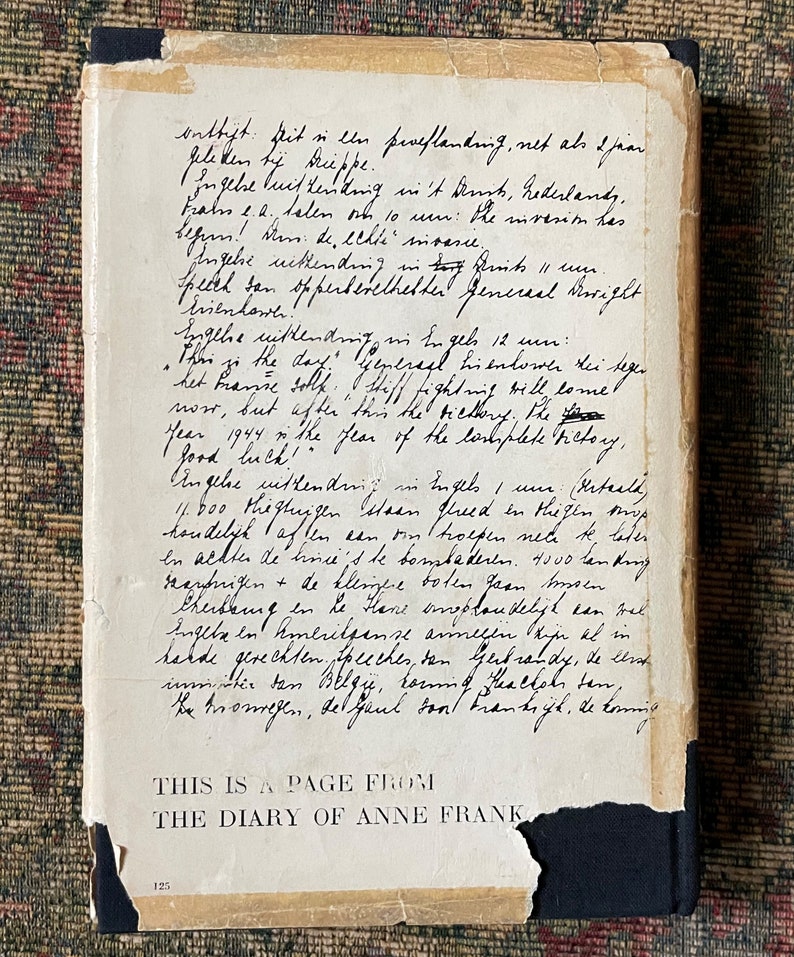 ontbijt: Dit is een proeflanding, net als 2 jaar
geleden bij Dieppe.
Engelse uitzending in 't Duits, Nederlands,
Frans e.a. talen om 10 uur: The invasion has
begun! Dus: de „echte" invasie.
Engelse uitzending in Duits 11 uur.
Speech van opperbevelhebber Generaal Dwight
Eisenhower.
Engelse uitzending in Engels 12 uur:
„This is the day." Generaal Eisenhower zei tegen
het Franse volk: „Stiff fighting will come
now, but after this the victory. The
Year 1944 is the year of the complete victory,
good luck!"
Engelse uitzending in Engels 1 uur: (vertaald)
11.000 vliegtuigen staan gereed en vliegen onop
houdelijk af en aan om troepen neer te laten
en achter de linie's te bombaderen. 4000 landing
vaartuigen + de kleinere boten gaan tussen
Cherbourg en Le Havre onophoudelijk aan wal
Engelse en Amerikaanse armeeën zijn al in
harde gevechten. Speeches van Gerbrandy, de eerst
minister van België, koning Haakon van
Noorwegen, de Gaul van Frankrijk, de koning
THIS IS A PAGE FROM
THE DIARY OF ANNE FRANK
125